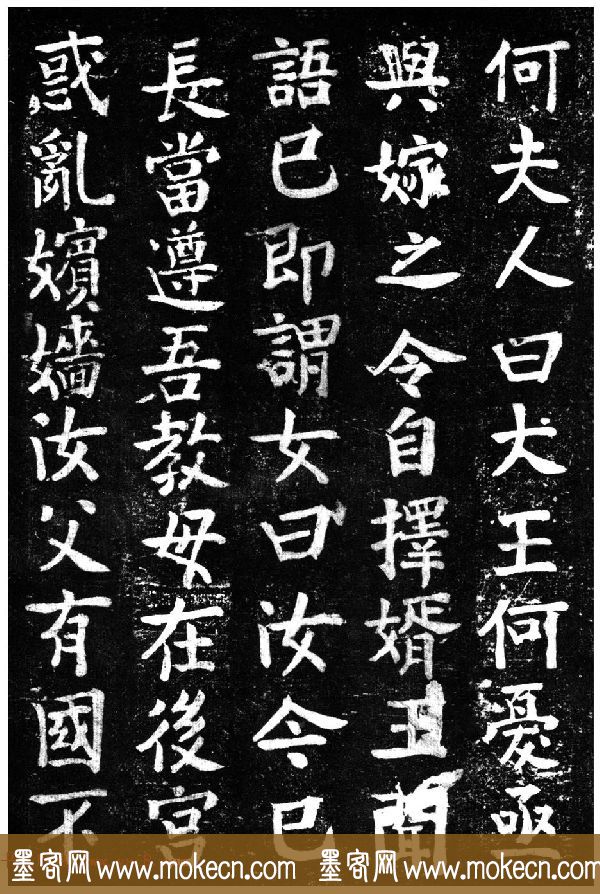 何夫人曰大王何憂亟
與嫁之令自擇婿王聞
語已即謂女曰汝今已
長當遵吾教毋在後宮
惑亂嬪嬙汝父有國不
墨客网 www.mokecn.com 墨客网 www.mokecn.com